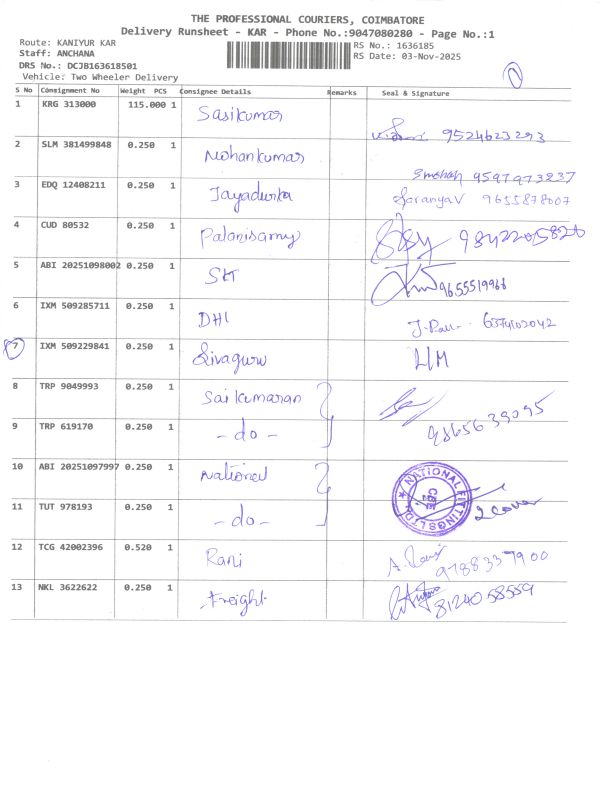 THE PROFESSIONAL COURIERS, COIMBATORE
Delivery Runsheet - KAR - Phone No.:9047080280 - Page No.:1
Route: KANIYUR KAR
Staff: ANCHANA
DRS No.: DCJB163618501
Vehicle: Two Wheeler Delivery
RS No.: 1636185
RS Date: 03-Nov-2025
S No Consignment No Weight PCS Consignee Details Remarks Seal & Signature
1 KRG 313000 115.000 1 Sasikumar 9524623293
2 SLM 381499848 0.250 1 Mohankumar Smohan 9597973237
3 EDQ 12408211 0.250 1 Jayadurka Saranya V 9655878007
4 CUD 80532 0.250 1 Palanisamy 9842205820
5 ABI 20251098002 0.250 1 SKT 9655519966
6 IXM 509285711 0.250 1 DHL 6374102042
7 IXM 509229841 0.250 1 Sivaguru L/M
8 TRP 9049993 0.250 1 Sai Kumaran 9865639095
9 TRP 619170 0.250 1 - do -
10 ABI 20251097997 0.250 1 National NATIONAL FITTINGS LTD
11 TUT 978193 0.250 1 - do - 2 Cover
12 TCG 42002396 0.520 1 Rani A. Rani 9788337900
13 NKL 3622622 0.250 1 Freight 8124058559